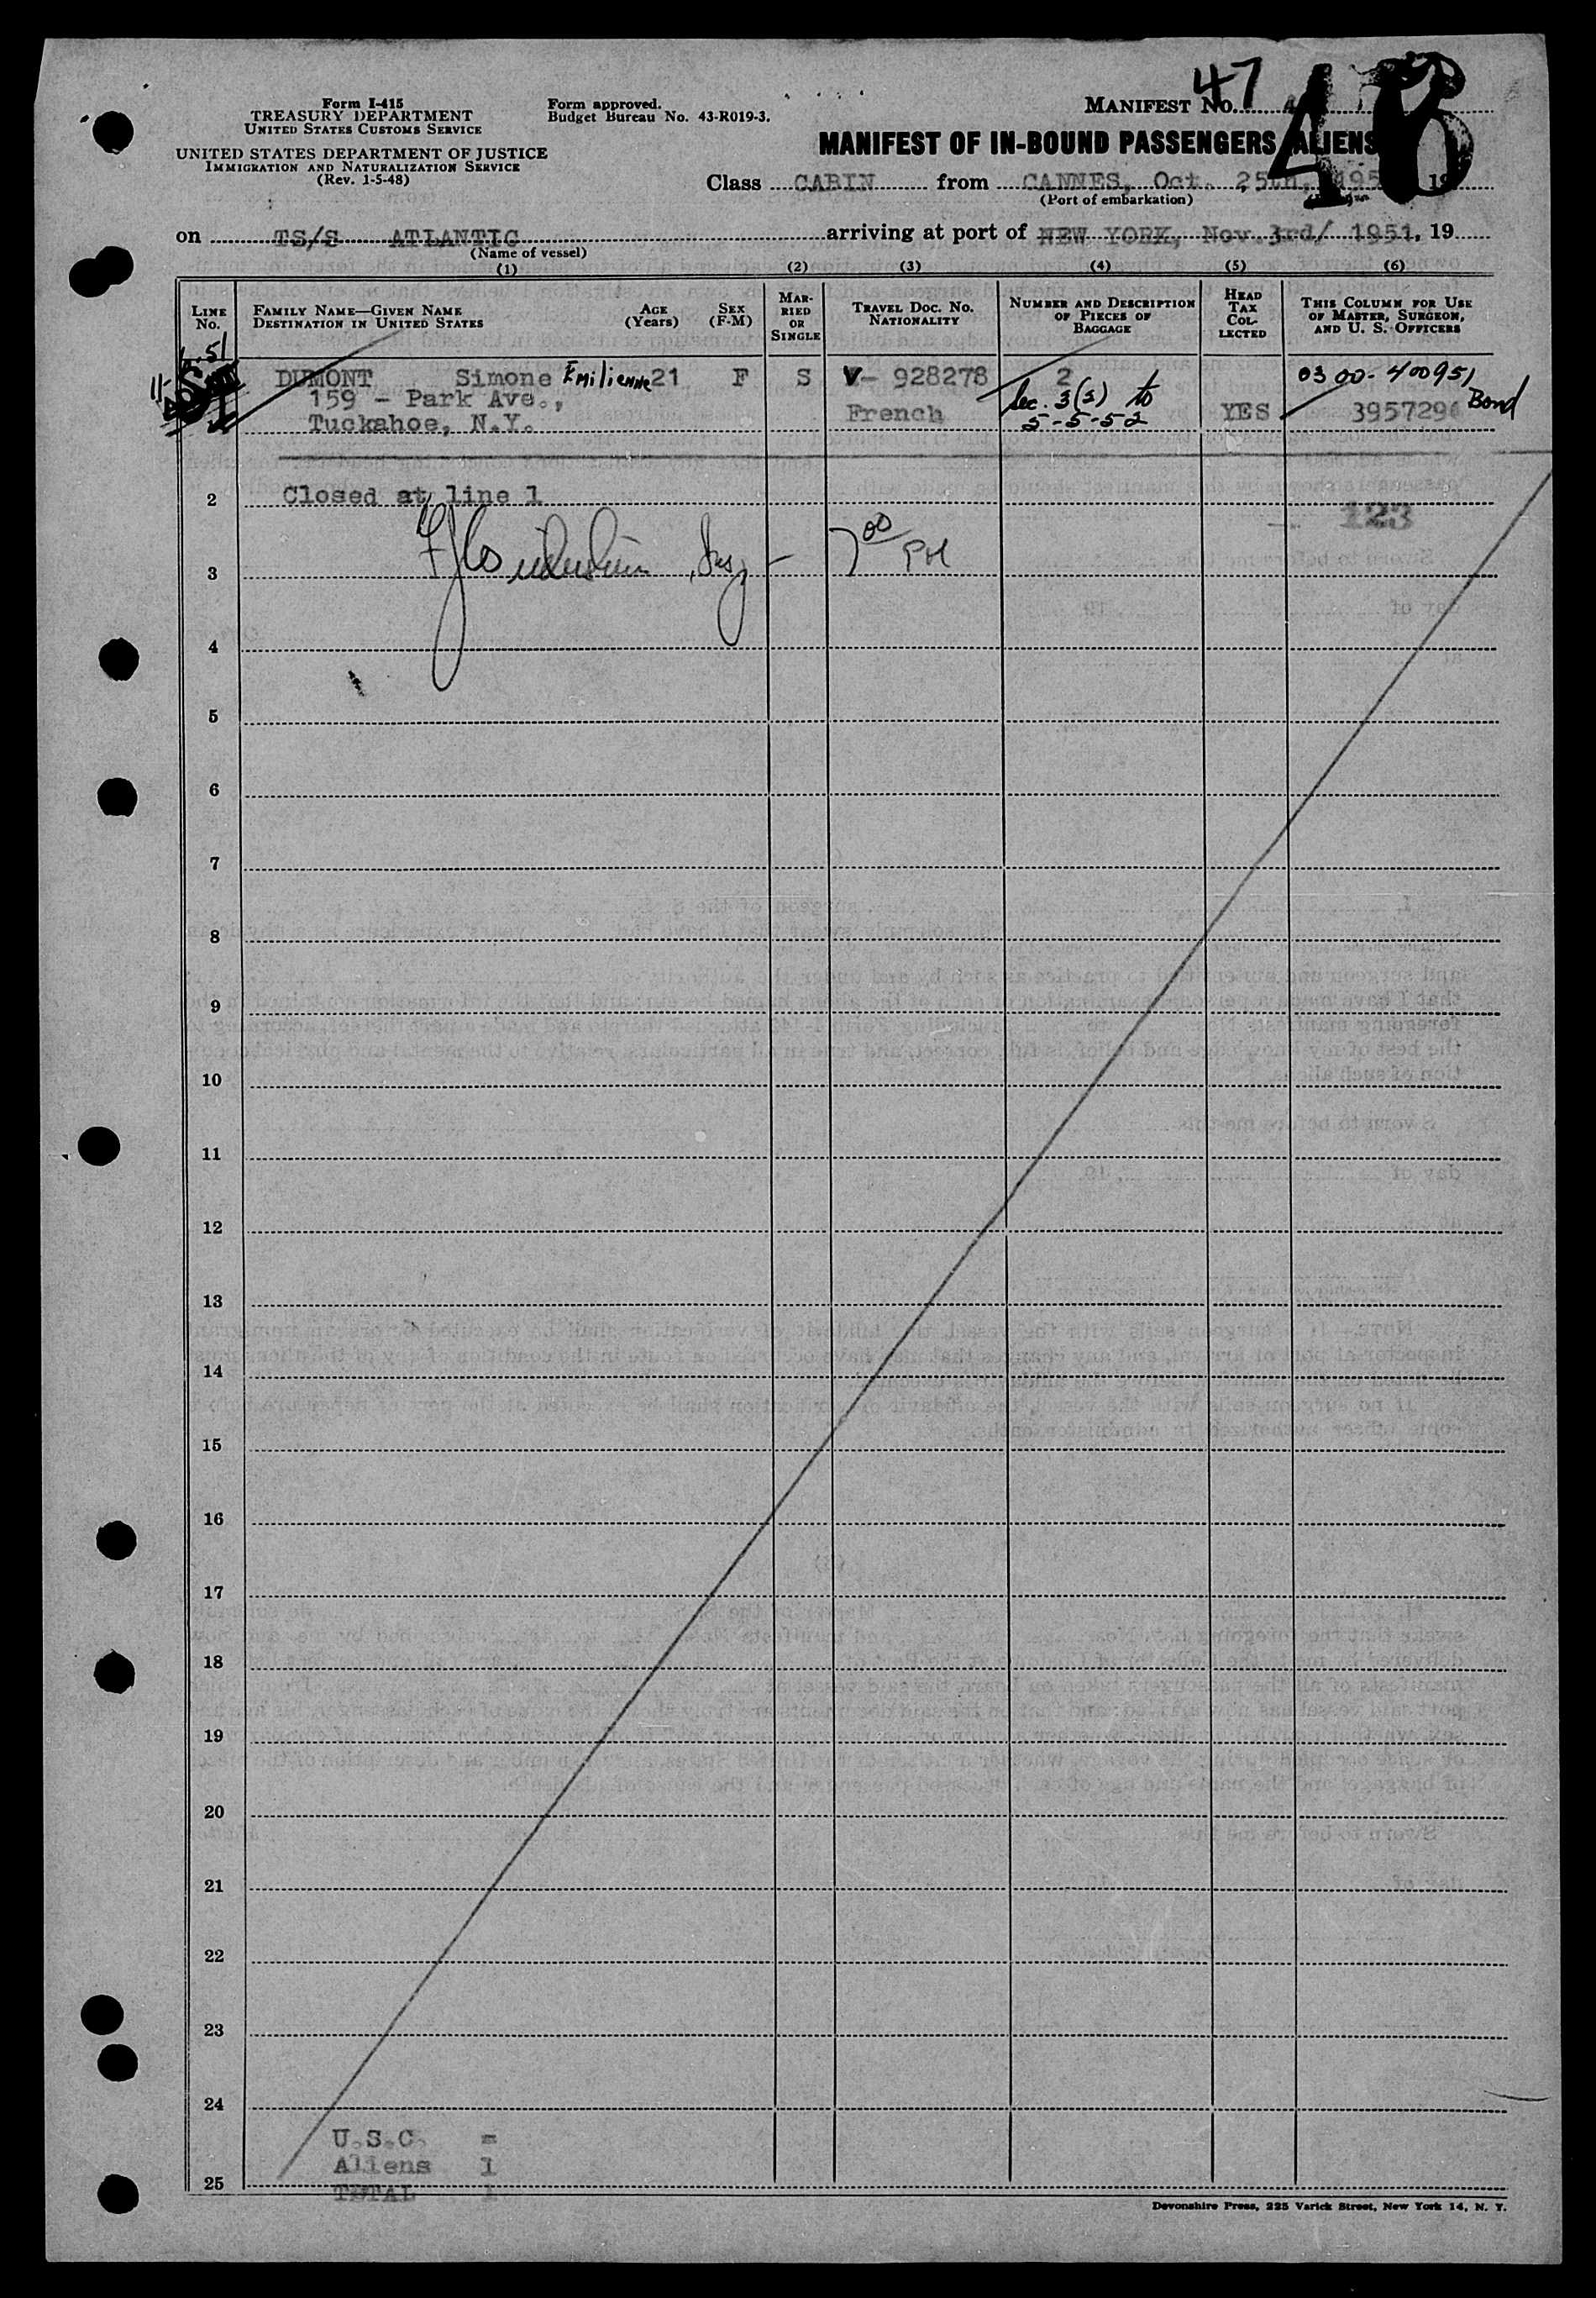 47
46
Form I-415
TREASURY DEPARTMENT
UNITED STATES CUSTOMS SERVICE
UNITED STATES DEPARTMENT OF JUSTICE
IMMIGRATION AND NATURALIZATION SERVICE
(Rev. 1-5-48)
Form approved.
Budget Bureau No. 43-R019-3.
MANIFEST NO.
MANIFEST OF IN-BOUND PASSENGERS ALIENS
Class CABIN from CANNES, Oct. 25th, 195 19
(Port of embarkation)
on TS/S ATLANTIC arriving at port of NEW YORK, Nov. 3rd/ 1951, 19
(Name of vessel)
(1) (2) (3) (4) (5) (6)
LINE NO.
FAMILY NAME—GIVEN NAME
DESTINATION IN UNITED STATES
AGE (Years)
SEX (F-M)
MARRIED OR SINGLE
TRAVEL DOC. NO.
NATIONALITY
NUMBER AND DESCRIPTION OF PIECES OF BAGGAGE
HEAD TAX COLLECTED
THIS COLUMN FOR USE OF MASTER, SURGEON, AND U. S. OFFICERS
DUMONT Simone Emilienne 21 F S V- 928278 2 0300-400951
159 - Park Ave., Sec. 3(2) to
Tuckahoe, N.Y. French 5-5-52 YES Bond
2 Closed at line 1
123
3 7 00 PM
4
5
6
7
8
9
10
11
12
13
14
15
16
17
18
19
20
21
22
23
24
U.S.C. =
Aliens 1
25
TOTAL 1
Devonshire Press, 225 Varick Street, New York 14, N. Y.